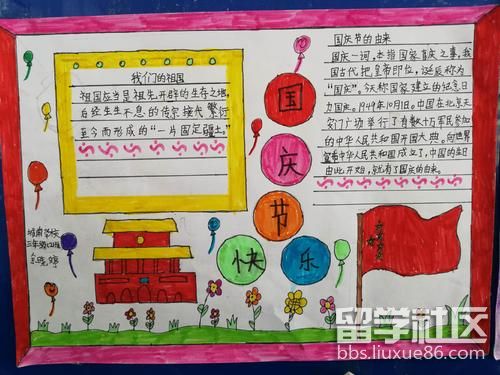 我们的祖国
祖国应当是祖先开辟的生存之地,
后经生生不息的传宗接代繁衍
至今而形成的"一片固定疆土。"
国
庆
节
快
乐
国庆节的由来
国庆一词,本指国家喜庆之事,我
国古代把皇帝即位,诞辰称为
"国庆"。今天称国家建立的纪念日
为国庆。1949年10月1日,中国在北京天
安门广场举行了有数十万军民参加
的中华人民共和国开国大典。向世界
宣布中华人民共和国成立了,中国的生日
由此开始,就有了国庆的由来。
学校
三年级
留学社区
bbs.liuxue86.com